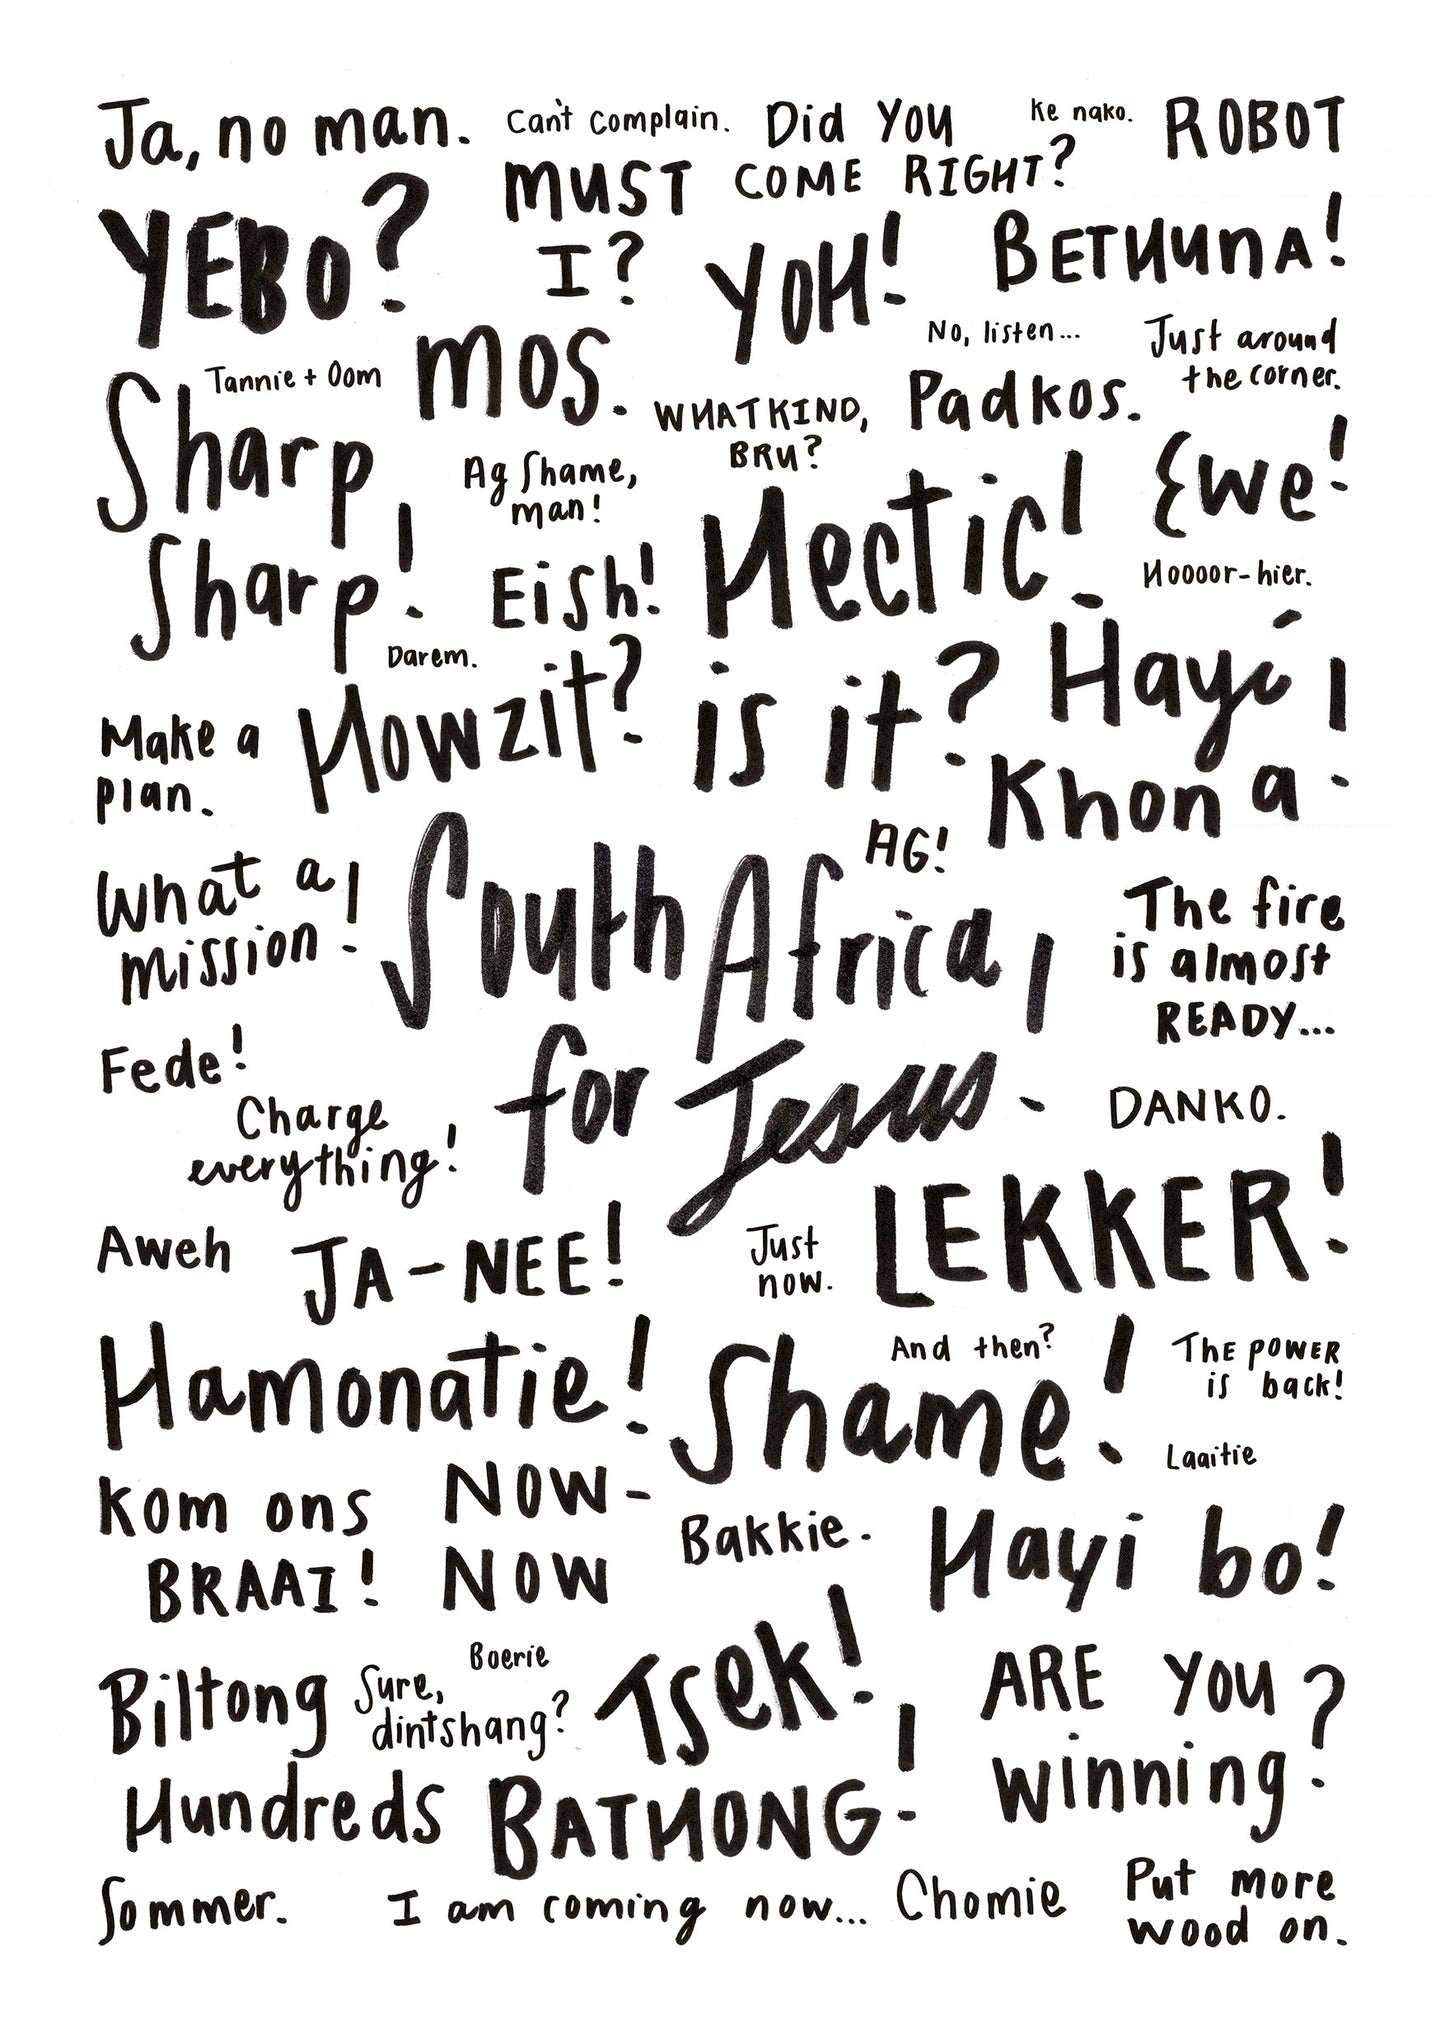 Ja, no man.
Can't complain.
Did you
come right?
Ke nako.
ROBOT
YEBO?
MUST
I?
YOH!
BETHUNA!
Tannie + Oom
mos.
No, listen...
Just around
the corner.
Sharp
Sharp!
WHATKIND,
BRU?
Padkos.
Ag Shame,
man!
Hectic!
Ewe!
Eish!
Hoooor-hier.
Darem.
Make a
plan.
Howzit?
is it?
Hayi
Khona!
AG!
What a
mission!
South Africa,
for Jesus.
The fire
is almost
READY...
Fede!
Charge
everything!
DANKO.
Aweh
JA-NEE!
Just
now.
LEKKER!
Hamonatie!
And then?
Shame!
The POWER
is back!
Laaitie
Kom ons
BRAAI!
NOW-
NOW
Bakkie.
Hayi bo!
Biltong
Sure,
dintshang?
Boerie
Tsek!
ARE YOU
winning?
Hundreds
BATHONG!
Sommer.
I am coming now...
Chomie
Put more
wood on.